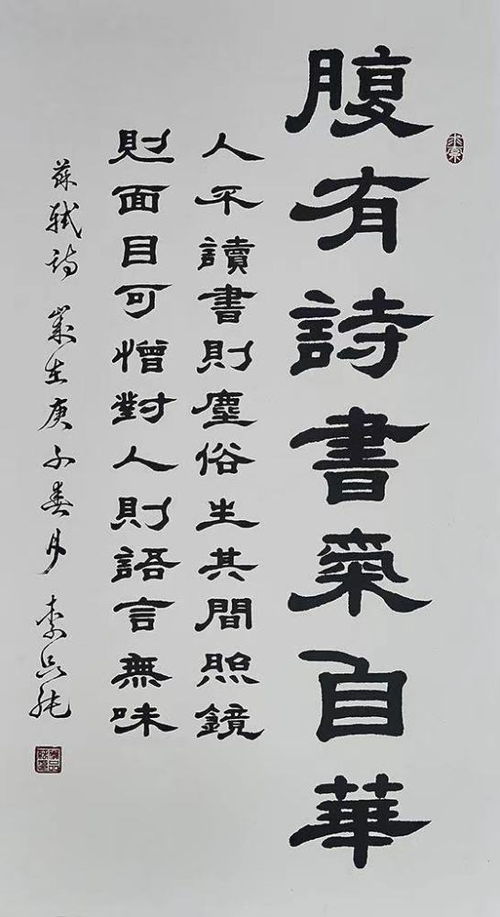 腹有詩書氣自華
人不讀書則塵俗生其間照鏡
則面目可憎對人則語言無味
蘇軾詩 歲在庚子春月